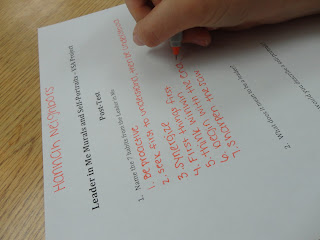 Hannah
Leader in Me Murals and Self-Portraits - VSA Project
Post-Test
1. Name the 7 habits from the Leader in Me
1. Be proactive
2. seek first to understand, then be understood
3. synergize
4. First thing first
5. think win win
6. begin with the end
7. Sharpen the saw
2. What does it mean to be leader?
would you describe a self-portrait